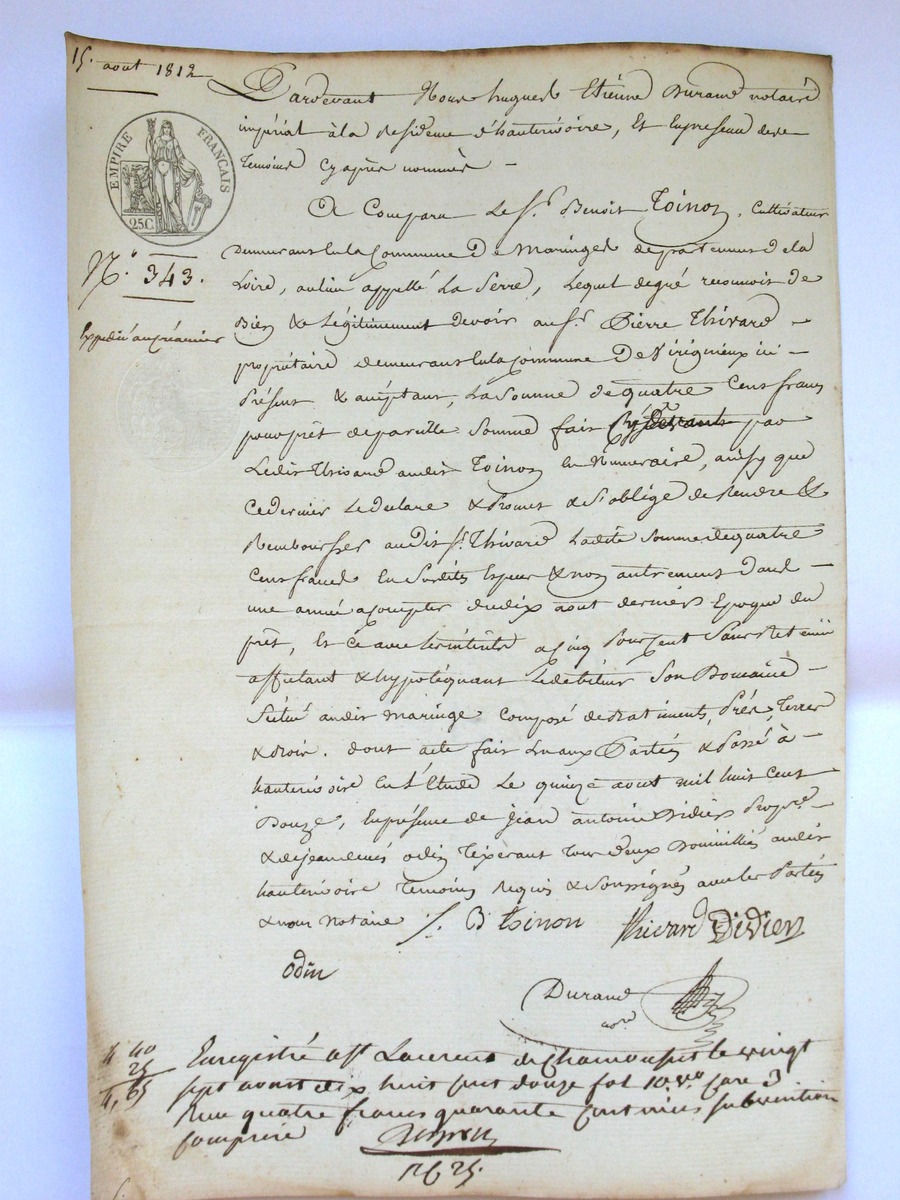 15. aout 1812
Pardevant Nous hugues Etiênne Durand notaire
impérial à la residence d'hauterivoire, et En presence des
temoins Cy après nommés —
A Comparu Le Sr. Benoit Toinon, Cultivateur
EMPIRE FRANÇAIS
25C.
demeurant en la Commune de Maringes departement de la
N.° 343.
Loire, au lieu appellé La Serre, Lequel degré reconnoit de
Expedié au créancier
Bien & Légitimement devoir au Sr. Pierre Thivard —
propriétaire demeurant en la Commune De Virigneux ici —
Présent & acceptant, La Somme de quatre Cens francs
pour prêt de pareille Somme fait par
Ledit Thivard audit Toinon En Numeraire, ainsy que
Ce dernier Le declare & Promet & s'oblige de Rendre &
Rembourser audit Sr. Thivard Ladite Somme de quatre
Cens francs En Susdites Especes & non autrement dans —
une année a Compter du dix aout dernier Epoque du
prêt, Et Ce avec les intérêts a Cinq Pour Cent Sans Retenue
affectant & hypotéquant Le debiteur Son Domaine —
Situé audit Maringe Composé de Batiments, Prés, Terres
& Bois. dont acte fait Lu aux Parties & Passé à —
hauterivoire En L'Etude Le quinze aout mil huit Cent
Douze, En présence de Jean antoine Didier Propre.
& de jean denis odin Tixerant tous deux Domiciliés audit
hauterivoire Temoins Requis & Soussignés avec les Parties
& nous Notaire ./. B toinon Thivard Didier
odin
Durand
nore
4 40
25
4,65
Enregistré a St Laurent de Chamousset le vingt
sept aoust dix huit cent douze fol 10 vo Case 3
Reçu quatre francs quarante centimes subvention
comprise